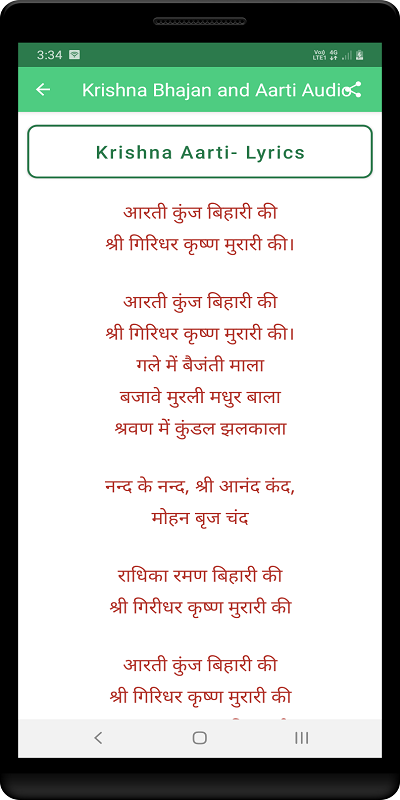 3:34
Vo) 4G
LTE1
Krishna Bhajan and Aarti Audio
Krishna Aarti- Lyrics
आरती कुंज बिहारी की
श्री गिरिधर कृष्ण मुरारी की।
आरती कुंज बिहारी की
श्री गिरिधर कृष्ण मुरारी की।
गले में बैजंती माला
बजावे मुरली मधुर बाला
श्रवण में कुंडल झलकाला
नन्द के नन्द, श्री आनंद कंद,
मोहन बृज चंद
राधिका रमण बिहारी की
श्री गिरीधर कृष्ण मुरारी की
आरती कुंज बिहारी की
श्री गिरिधर कृष्ण मुरारी की